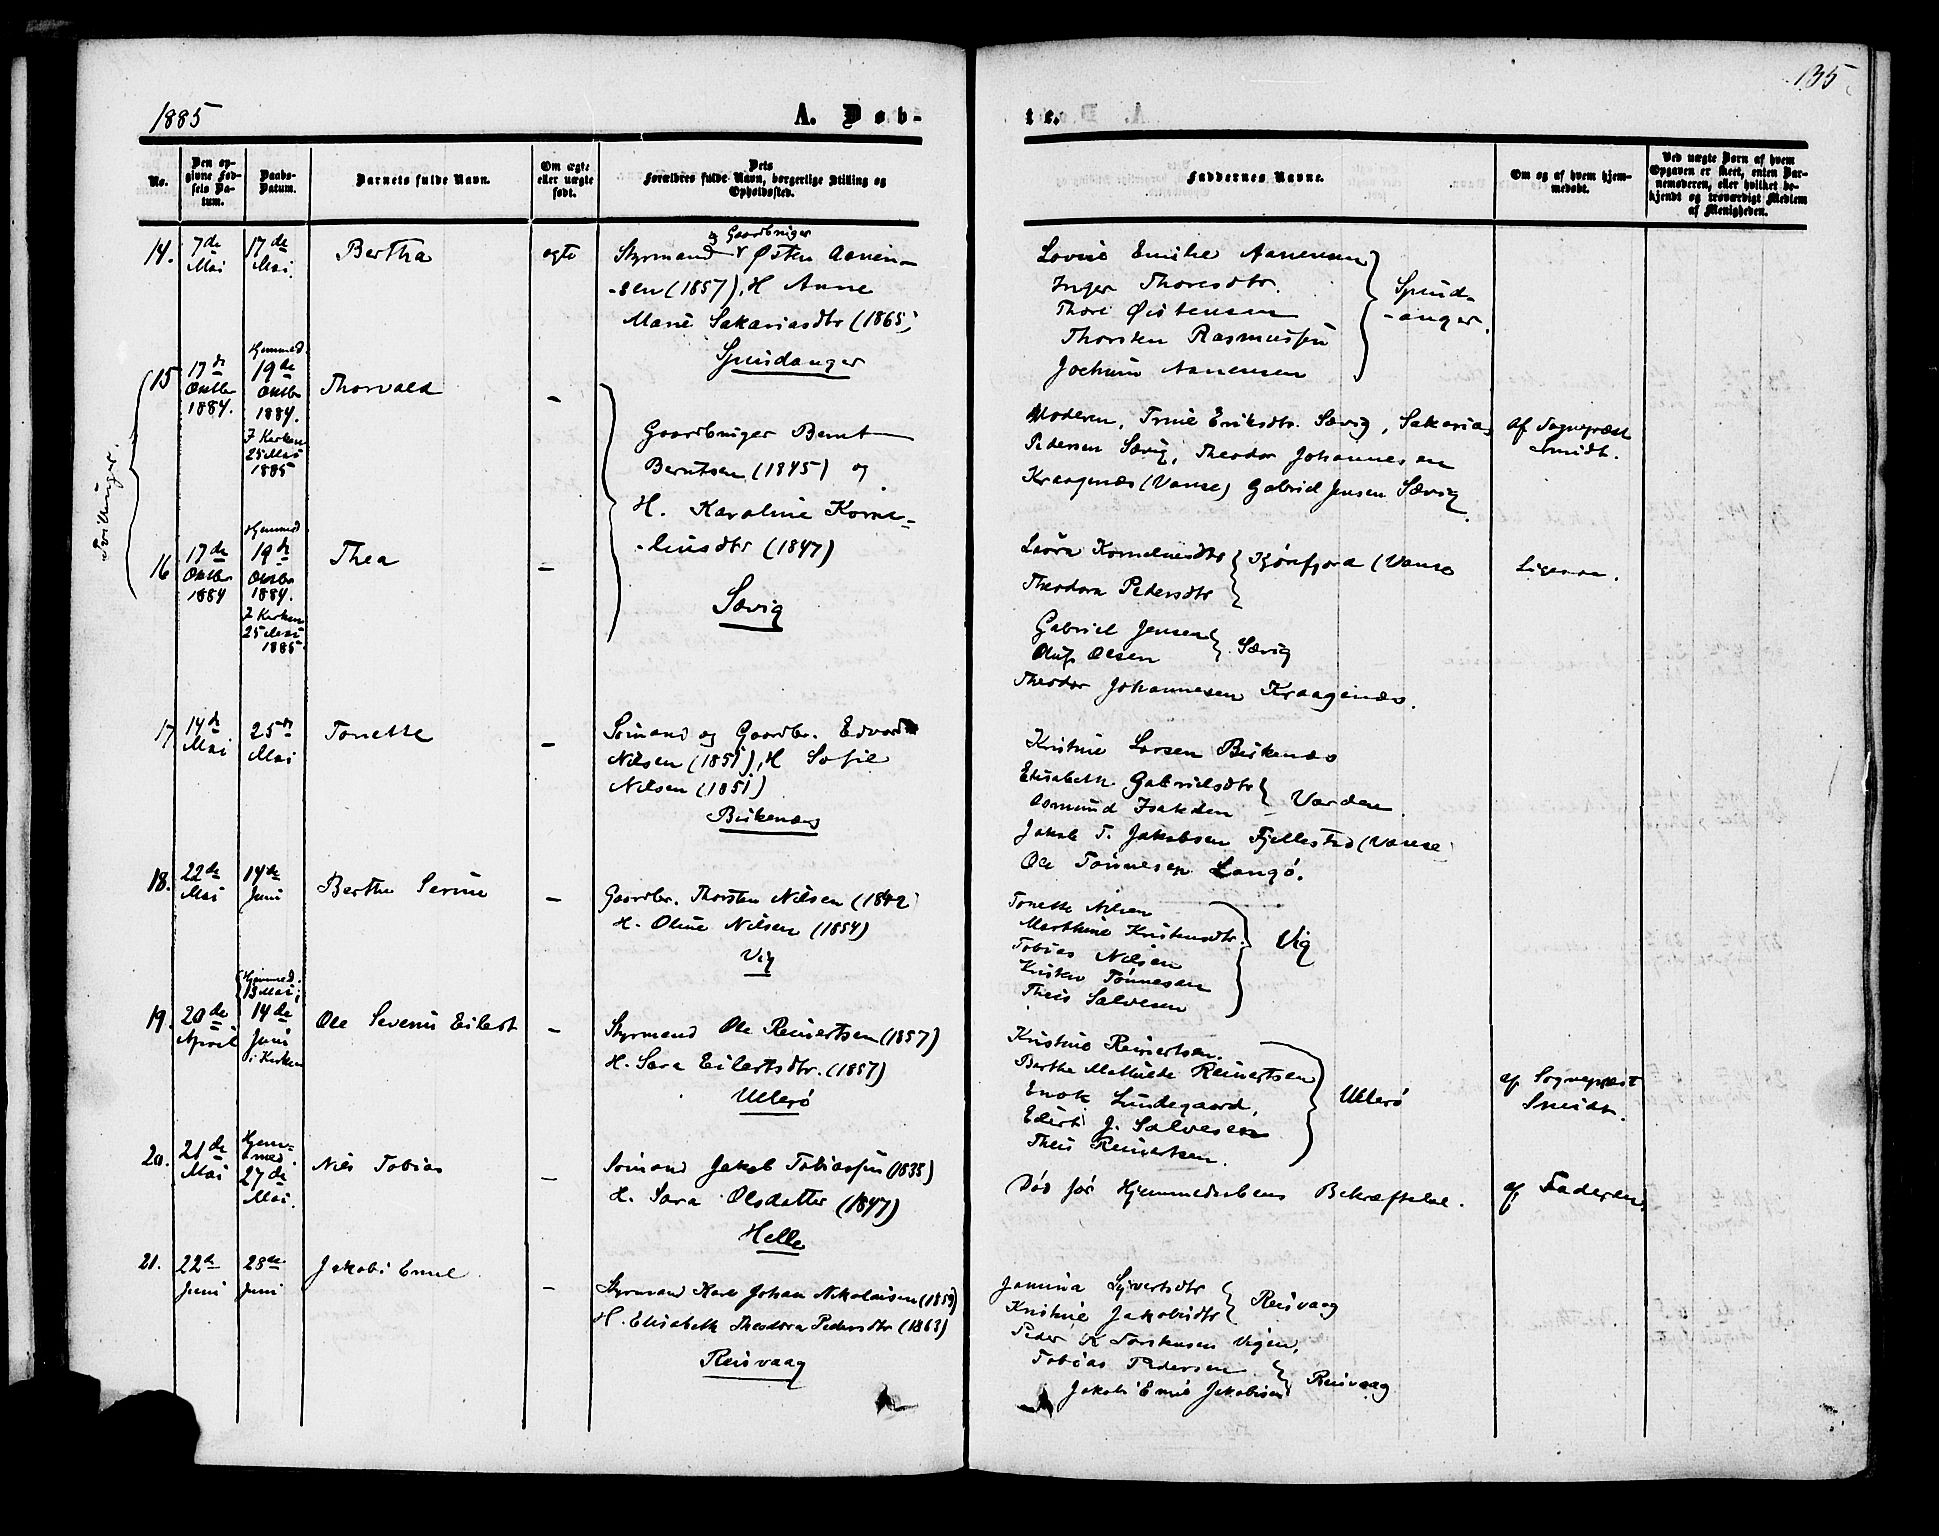 1885
A. Døb-
te.
135
No.
Den op-
givne Fød-
sels Da-
tum.
Daabs-
Datum.
Barnets fulde Navn.
Om ægte
eller uægte
født.
Dets
Forældres fulde Navn, borgerlige Stilling og
Opholdssted.
Faddernes Navne.
Om og af hvem hjem-
medøbt.
Ved uægte Børn af hvem
Opgaven er skeet, enten Bar-
nemoderen, eller hvilket be-
kjendt og troværdigt Medlem
af Menigheden.
14.
7de
Mai
17de
Mai.
Bertha
ægte
og Gaardbruger
Styrmand Østen Aanen-
-sen (1857), H Anne
Marie Sakariasdtr (1865)
Spindanger
Lovise Emilie Aanensen
Inger Thoresdtr.
Thore Østensen
Thorsten Rasmussen
Jochum Aanensen
Spind-
-anger.
Tvillinger.
15
17de
Oktbr
1884.
Hjemmed.
19de
Oktbr
1884.
I Kirken
25 Mai
1885
Thorvald
-
Gaardbruger Bernt
Berntsen (1845) og
H. Karoline Korne-
-liusdtr (1847)
Sævig
Moderen, Trine Eriksdtr. Sævig, Sakarias
Pedersen Sævig, Theodor Johannesen
Kraagenæs (Vanse) Gabriel Jensen Sævig.
Af Sognepræst
Smidt.
16
17de
Oktbr
1884
Hjemmed
19de
Oktbr
1884.
I Kirken
25 Mai
1885.
Thea
-
Laura Korneliusdtr
Theodora Pedersdtr
Kjørrfjord (Vanse
Gabriel Jensen
Oluf Olsen
Sævig
Theodor Johannesen Kraagenæs.
Ligesaa.
17
14de
Mai
25de
Mai
Tonette
-
Sømand og Gaardbr. Edvard
Nilsen (1851), H Sofie
Nilsen (1851)
Birkenæs
Kristine Larsen Birkenæs
Elisabeth Gabrielsdtr
Asmund Isaksen
Varden
Jakob T. Jakobsen Fjellestad (Vanse
Ole Tønnesen Langø.
18.
22de
Mai
14de
Juni
Berthe Serine
-
Gaardbr. Thorsten Nilsen (1842)
H. Oline Nilsen (1854)
Vig
Tonette Nilsen
Marthine Kristensdtr.
Tobias Nilsen
Kristen Tønnesen
Theis Salvesen
Vig
19.
20de
April
Hjemmed.
13 Mai;
14de
Juni
i Kirken
Ole Severin Eilert
-
Styrmand Ole Reinertsen (1857)
H. Sara Eilertsdtr. (1857)
Ullerø
Kristine Reinertsen.
Berthe Mathilde Reinertsen
Enok Lindegaard,
Edert J. Salvesen
Theis Reinertsen.
Ullerø
af Sognepræst
Smidt.
20.
21de
Mai
Hjem-
med.
27de
Mai.
Nils Tobias
-
Sømand Jakob Tobiassen (1835)
H. Sara Olsdatter (1847)
Helle
Død før Hjemmedaabens Bekræftelse.
af Faderen
21.
22de
Juni
28de
Juni
Jakob Emil
-
Styrmand Karl Johan Nikolaisen (1859)
H. Elisabeth Theodora Pedersdtr (1863)
Reisvaag
Jamina Syvertsdtr
Kristine Jakobsdtr
Reisvaag
Peder K Torstensen Vigen,
Tobias Pedersen
Jakob Emil Jakobsen
Reisvaag